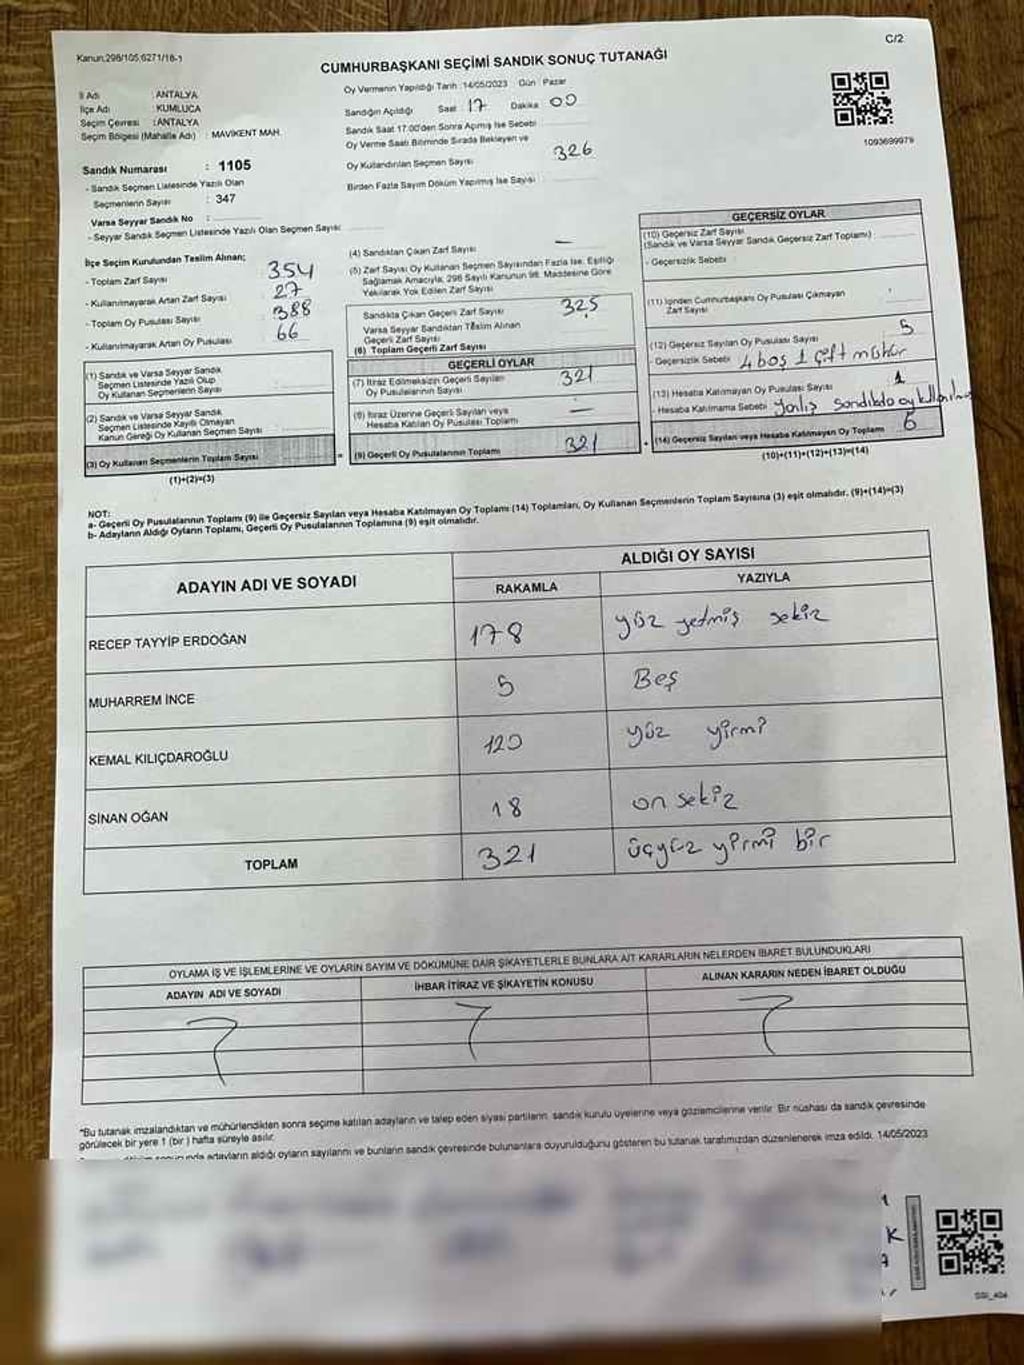 Kanun:298/105;6271/18-1
C/2
CUMHURBAŞKANI SEÇİMİ SANDIK SONUÇ TUTANAĞI
İl Adı : ANTALYA
İlçe Adı : KUMLUCA
Seçim Çevresi : ANTALYA
Seçim Bölgesi (Mahalle Adı) : MAVİKENT MAH.
Oy Vermenin Yapıldığı Tarih :14/05/2023 Gün : Pazar
Sandığın Açıldığı Saat 17 Dakika 00
Sandık Saat 17.00'den Sonra Açılmış İse Sebebi
Oy Verme Saati Bitiminde Sırada Bekleyen ve
Oy Kullandırılan Seçmen Sayısı 326
Birden Fazla Sayım Döküm Yapılmış İse Sayısı
1093699979
Sandık Numarası : 1105
- Sandık Seçmen Listesinde Yazılı Olan
Seçmenlerin Sayısı : 347
Varsa Seyyar Sandık No :
- Seyyar Sandık Seçmen Listesinde Yazılı Olan Seçmen Sayısı:
İlçe Seçim Kurulundan Teslim Alınan;
- Toplam Zarf Sayısı : 354
- Kullanılmayarak Artan Zarf Sayısı : 27
- Toplam Oy Pusulası Sayısı : 388
- Kullanılmayarak Artan Oy Pusulası : 66
(1) Sandık ve Varsa Seyyar Sandık
Seçmen Listesinde Yazılı Olup
Oy Kullanan Seçmen Sayısı
(2) Sandık ve Varsa Seyyar Sandık
Seçmen Listesinde Kayıtlı Olmayan
Kanun Gereği Oy Kullanan Seçmen Sayısı
(3) Oy Kullanan Seçmenlerin Toplam Sayısı
(1)+(2)=(3)
(4) Sandıktan Çıkan Zarf Sayısı —
(5) Zarf Sayısı Oy Kullanan Seçmen Sayısından Fazla İse, Eşitliği
Sağlamak Amacıyla, 298 Sayılı Kanunun 98. Maddesine Göre
Yakılarak Yok Edilen Zarf Sayısı
Sandıkta Çıkan Geçerli Zarf Sayısı 325
Varsa Seyyar Sandıktan Teslim Alınan
Geçerli Zarf Sayısı
(6) Toplam Geçerli Zarf Sayısı
GEÇERLİ OYLAR
(7) İtiraz Edilmeksizin Geçerli Sayılan
Oy Pusulalarının Sayısı 321
(8) İtiraz Üzerine Geçerli Sayılan veya
Hesaba Katılan Oy Pusulası Toplamı —
(9) Geçerli Oy Pusulalarının Toplamı 321
GEÇERSİZ OYLAR
(10) Geçersiz Zarf Sayısı
(Sandık ve Varsa Seyyar Sandık Geçersiz Zarf Toplamı)
- Geçersizlik Sebebi :
(11) İçinden Cumhurbaşkanı Oy Pusulası Çıkmayan
Zarf Sayısı
(12) Geçersiz Sayılan Oy Pusulası Sayısı 5
- Geçersizlik Sebebi : 4 boş 1 çift mühür
(13) Hesaba Katılmayan Oy Pusulası Sayısı 1
- Hesaba Katılmama Sebebi : yanlış sandıkda oy kullanılması
(14) Geçersiz Sayılan veya Hesaba Katılmayan Oy Toplamı 6
(10)+(11)+(12)+(13)=(14)
NOT:
a- Geçerli Oy Pusulalarının Toplamı (9) ile Geçersiz Sayılan veya Hesaba Katılmayan Oy Toplamı (14) Toplamları, Oy Kullanan Seçmenlerin Toplam Sayısına (3) eşit olmalıdır. (9)+(14)=(3)
b- Adayların Aldığı Oyların Toplamı, Geçerli Oy Pusulalarının Toplamına (9) eşit olmalıdır.
ADAYIN ADI VE SOYADI
ALDIĞI OY SAYISI
RAKAMLA YAZIYLA
RECEP TAYYİP ERDOĞAN 178 yüz yetmiş sekiz
MUHARREM İNCE 5 Beş
KEMAL KILIÇDAROĞLU 120 yüz yirmi
SİNAN OĞAN 18 on sekiz
TOPLAM 321 üçyüz yirmi bir
OYLAMA İŞ VE İŞLEMLERİNE VE OYLARIN SAYIM VE DÖKÜMÜNE DAİR ŞİKAYETLERLE BUNLARA AİT KARARLARIN NELERDEN İBARET BULUNDUKLARI
ADAYIN ADI VE SOYADI İHBAR İTİRAZ VE ŞİKAYETİN KONUSU ALINAN KARARIN NEDEN İBARET OLDUĞU
*Bu tutanak imzalandıktan ve mühürlendikten sonra seçime katılan adayların ve talep eden siyasi partilerin, sandık kurulu üyelerine veya gözlemcilerine verilir. Bir nüshası da sandık çevresinde
görülecek bir yere 1 (bir ) hafta süreyle asılır.
adayların aldığı oyların sayılarını ve bunların sandık çevresinde bulunanlara duyurulduğunu gösteren bu tutanak tarafımızdan düzenlenerek imza edildi. 14/05/2023
K